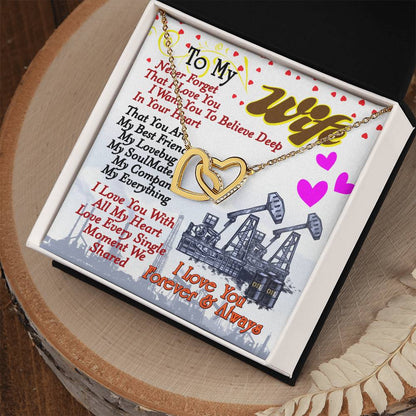 To My
Wife
Never Forget
That I Love You
I Want You To Believe Deep
In Your Heart
That You Are
My Best Friend
My Lovebug
My SoulMate
My Compan
My Everything
I Love You With
All My Heart
Love Every Single
Moment We
Shared
I Love You
Forever & Always